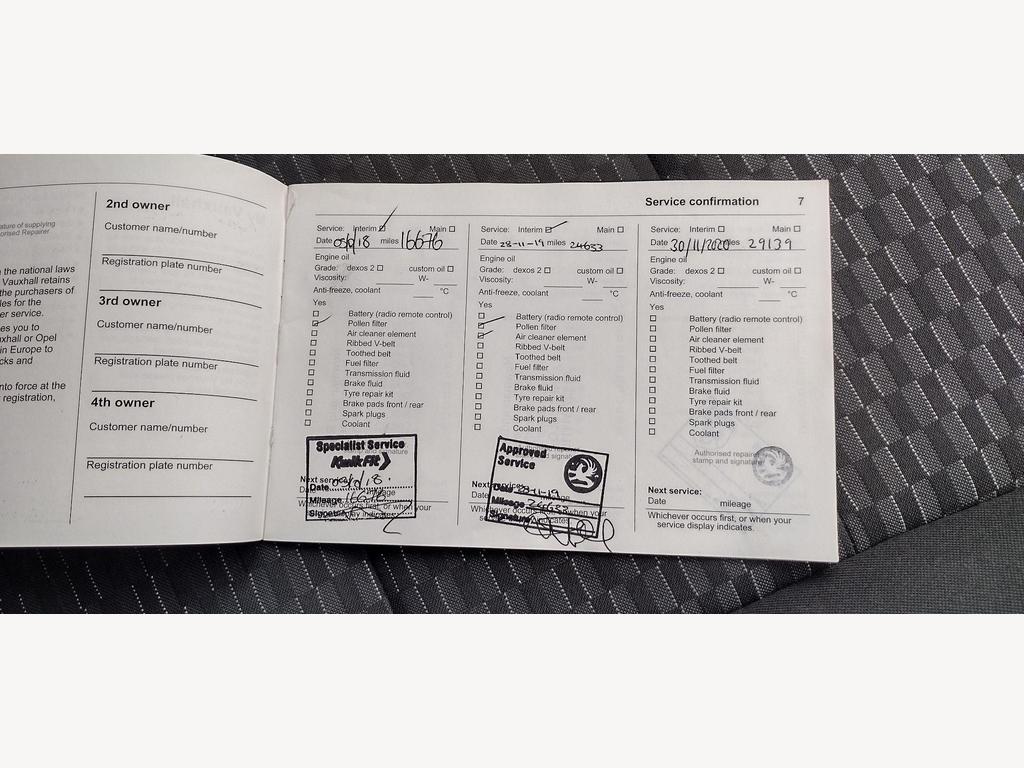 ature of supplying
orised Repairer
the national laws
Vauxhall retains
the purchasers of
les for the
er service.
es you to
uxhall or Opel
in Europe to
cks and
nto force at the
registration,
2nd owner
Customer name/number
Registration plate number
3rd owner
Customer name/number
Registration plate number
4th owner
Customer name/number
Registration plate number
Service confirmation 7
Service: Interim Main
Date miles 16676
Engine oil
Grade: dexos 2 custom oil
Viscosity: W-
Anti-freeze, coolant °C
Yes
Battery (radio remote control)
Pollen filter
Air cleaner element
Ribbed V-belt
Toothed belt
Fuel filter
Transmission fluid
Brake fluid
Tyre repair kit
Brake pads front / rear
Spark plugs
Coolant
Specialist Service
KwikFit
Next service:
Date
Mileage 16676
Signature
Whichever occurs first, or when your
display indicates.
Service: Interim Main
Date 28-11-19 miles 24653
Engine oil
Grade: dexos 2 custom oil
Viscosity: W-
Anti-freeze, coolant °C
Yes
Battery (radio remote control)
Pollen filter
Air cleaner element
Ribbed V-belt
Toothed belt
Fuel filter
Transmission fluid
Brake fluid
Tyre repair kit
Brake pads front / rear
Spark plugs
Coolant
Approved
Service
Next service:
Date 28-11-19
Date mileage
Mileage 24653
Whichever occurs first, or when your
Signature
service display indicates.
Service: Interim Main
Date 30/11/2020 miles 29139
Engine oil
Grade: dexos 2 custom oil
Viscosity: W-
Anti-freeze, coolant °C
Yes
Battery (radio remote control)
Pollen filter
Air cleaner element
Ribbed V-belt
Toothed belt
Fuel filter
Transmission fluid
Brake fluid
Tyre repair kit
Brake pads front / rear
Spark plugs
Coolant
Authorised repairer
stamp and signature
Next service:
Date mileage
Whichever occurs first, or when your
service display indicates.